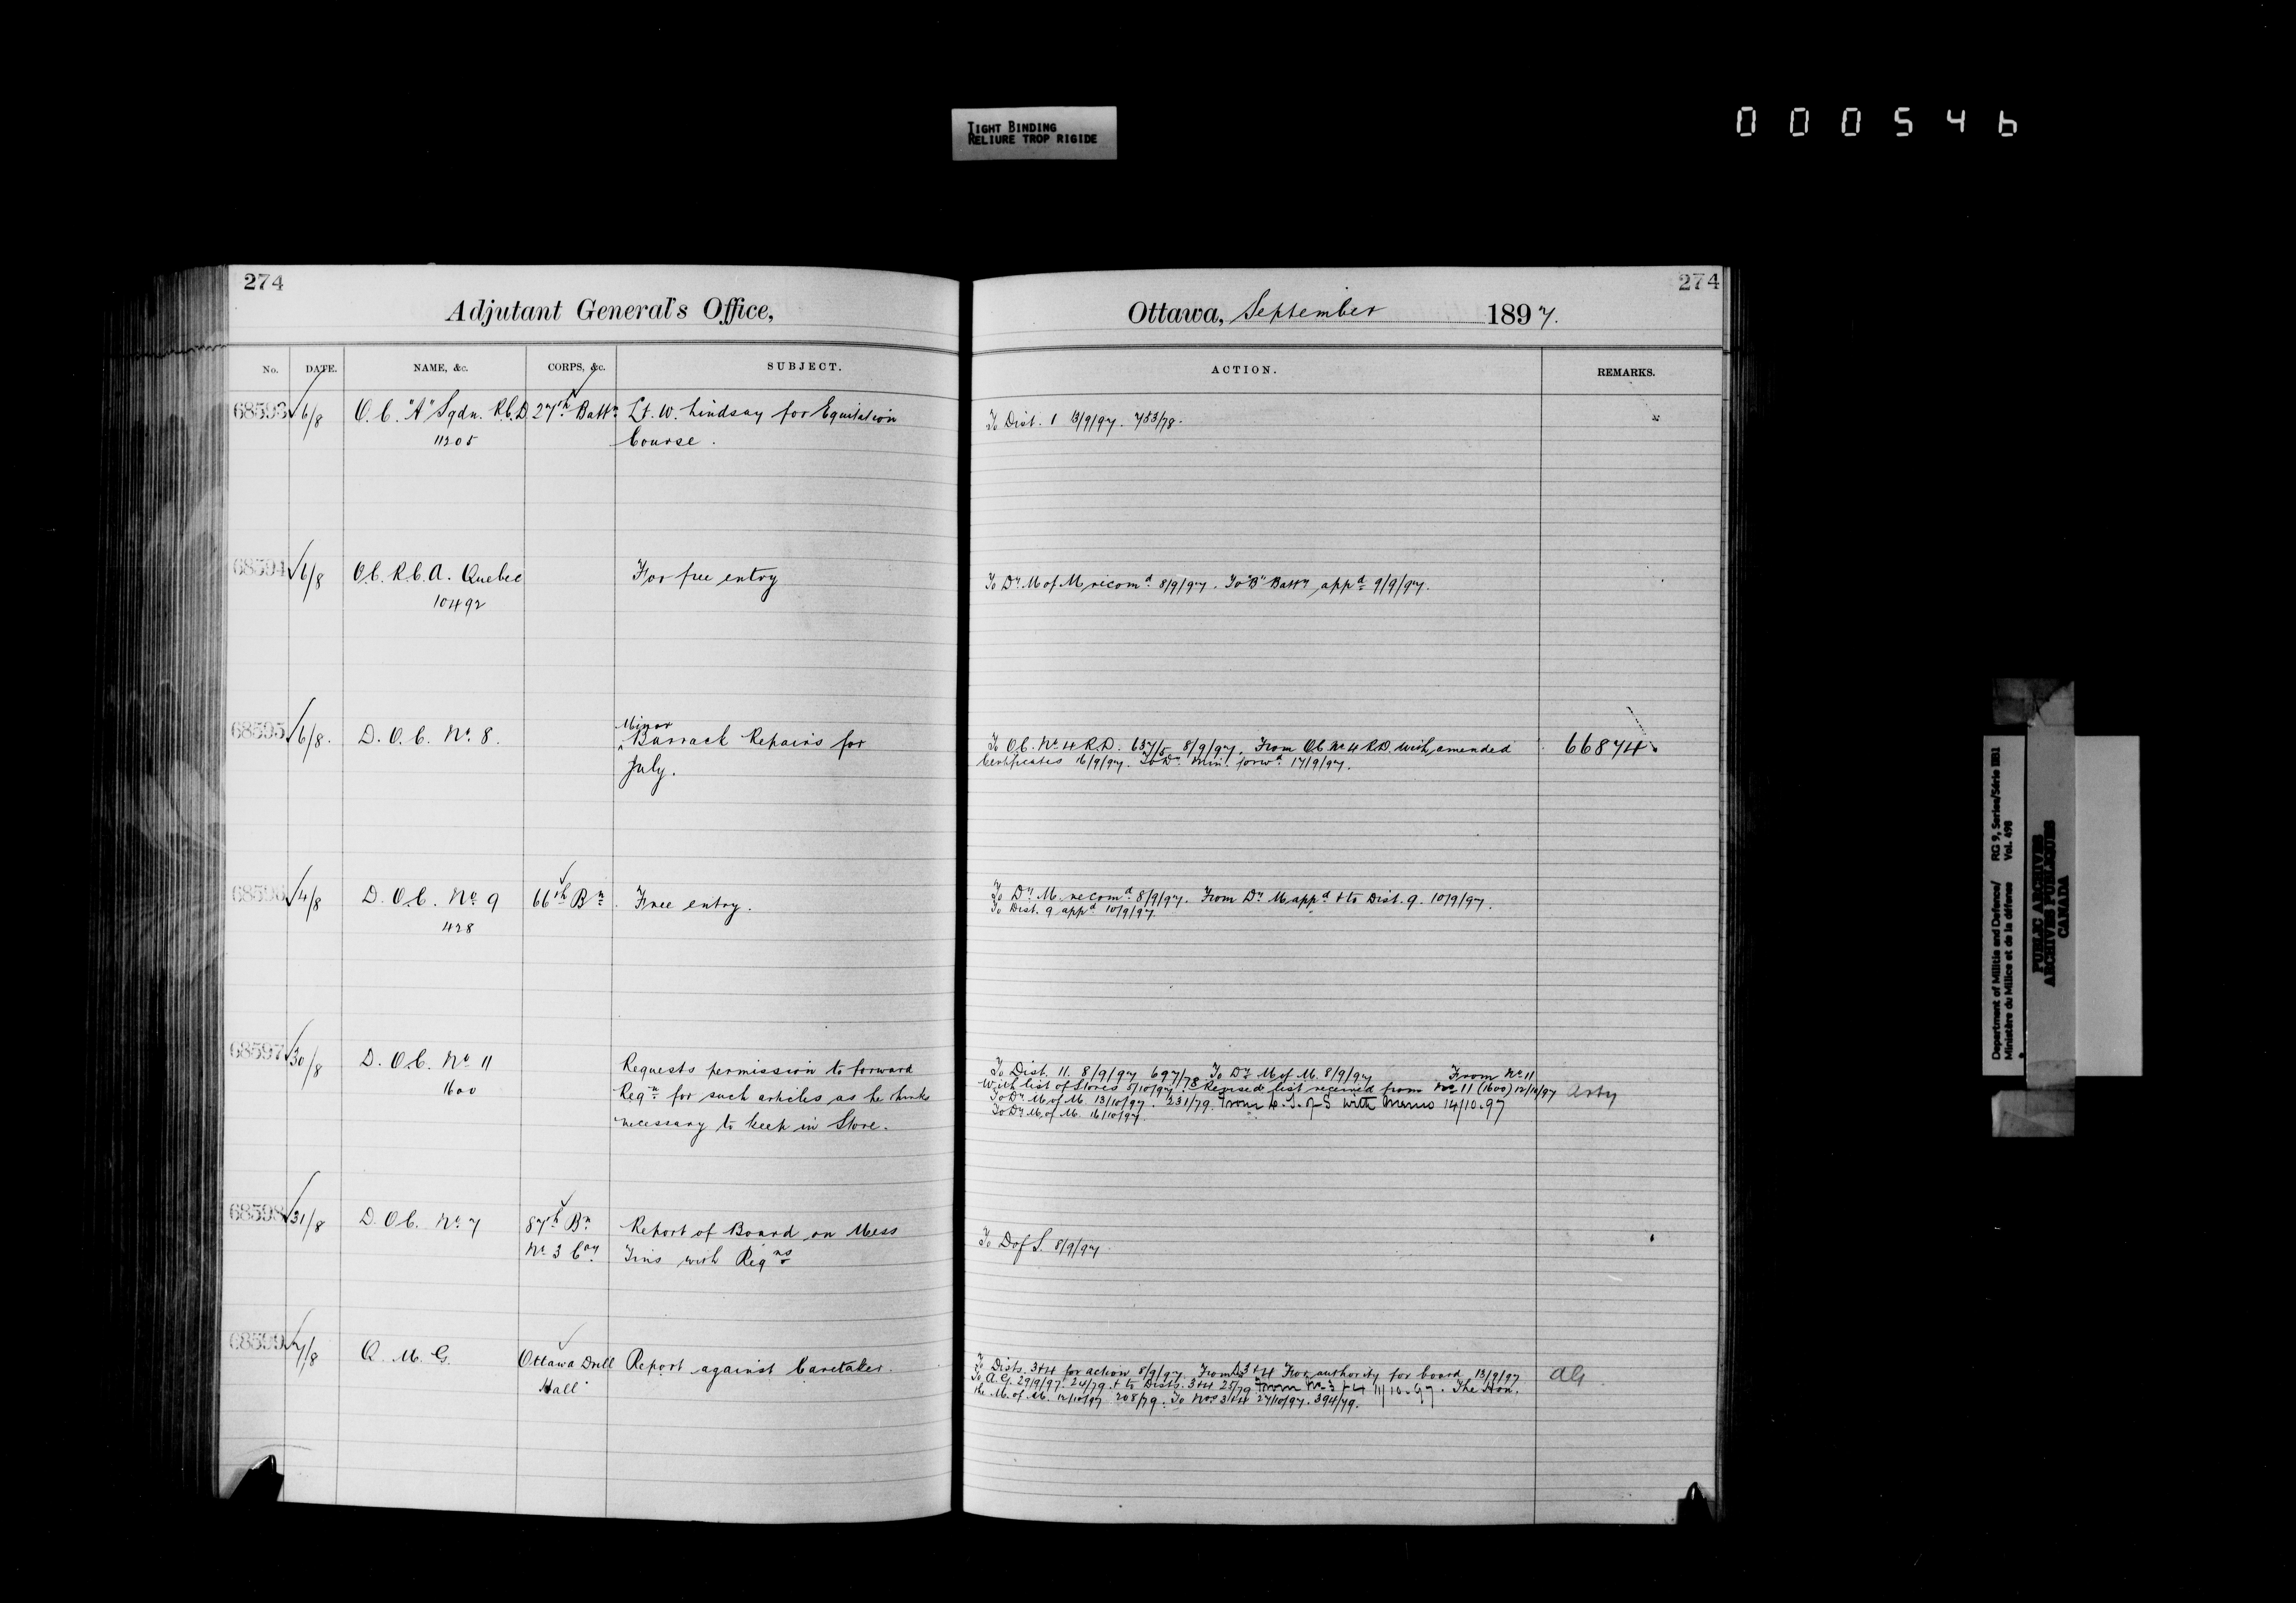 TIGHT BINDING
RELIURE TROP RIGIDE
000546
274
Adjutant General's Office,
No. DATE. NAME, &c. CORPS, &c. SUBJECT.
68593 6/8 O.C. "A" Sqdn. R.C.D. 27th Battn Lt. W. Lindsay for Equitation
11205 Course.
68594 6/8 O.C. R.C.A. Quebec For free entry
10492
68595 6/8. D.O.C. No. 8. Minor
Barrack Repairs for
July.
68596 4/8 D.O.C. No. 9 66th Bn. Free entry.
428
68597 30/8 D.O.C. No. 11 Requests permission to forward
1600 Reqn for such articles as he thinks
necessary to keep in Store.
68598 31/8 D.O.C. No. 7 87th Bn. Report of Board on Mess
No. 3 Coy. Tins with Reqns
68599 7/8 Q.M.G. Ottawa Drill Report against Caretaker.
Hall
274
Ottawa, September 1897.
ACTION. REMARKS.
To Dist. 1 13/9/97. 753/78.
To Dy. M of M recomd 8/9/97. To "B" Batty appd 9/9/97.
To O.C. No 4 R.D. 637/5 8/9/97. From O.C. No 4 R.D. with amended 66874
Certificates 16/9/97. To Dy. Min. forwd 17/9/97.
To Dy. M. recomd 8/9/97. From Dy M appd & to Dist. 9. 10/9/97.
To Dist. 9 appd 10/9/97
To Dist. 11. 8/9/97 697/78 To Dy M of M. 8/9/97 From No 11
with list of Stores 5/10/97. Revised list received from No 11 (1600) 12/10/97
To Dy M of M 13/10/97. 231/79. From D. S. of S with memo 14/10.97
To Dy M of M. 16/10/97.
To D of S. 8/9/97.
To Dists. 3&4 for action 8/9/97. From Ds 3&4 For authority for board 13/9/97 AG
To A.G. 29/9/97. 24/79. & to Dists. 3&4 25/79 From No 3 & 4 11/10.97. The Hon.
the M. of M. 12/10/97 208/79. To Nos 3&4 27/10/97. 394/79.
Department of Militia and Defence/ RG 9, Series/Série IIB1
Ministère du Milice et de la défense Vol. 498
PUBLIC ARCHIVES
ARCHIVES PUBLIQUES
CANADA